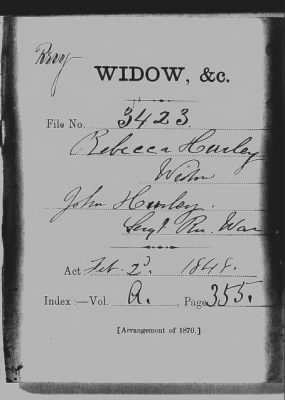 Revy
WIDOW, &c.
File No. 3423.
Rebecca Hurley
Widow
John Hurley.
Sergt Rev. War
Act Feb. 2d. 1848.
Index :—Vol. A. , Page 355.
[Arrangement of 1870.]